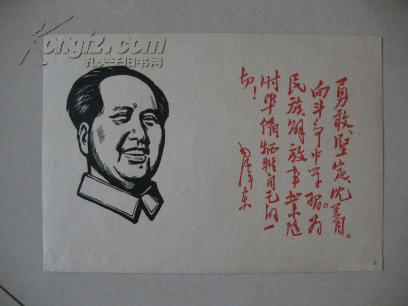 Kongfz.com
孔夫子旧书网
勇敢、坚定、沈着。
向斗争中学习。为
民族解放事业随
时准备牺牲自己的一
切！
毛泽东